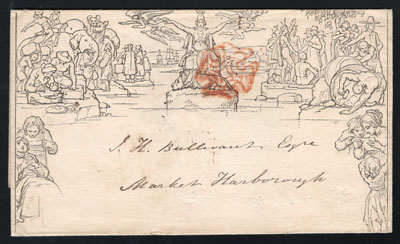 J. H. Bullivant Esqre
Market Harborough